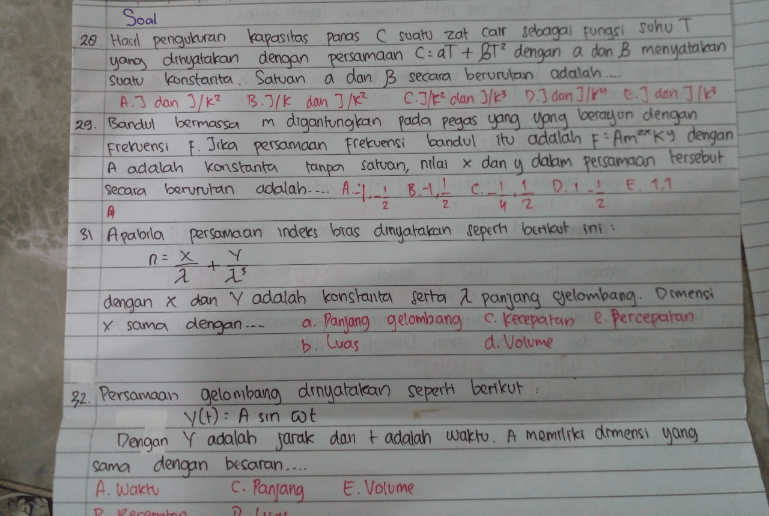 Soal
28. Hasil pengukuran kapasitas panas C suatu zat cair sebagai fungsi suhu T
yang dinyatakan dengan persamaan C = aT + BT² dengan a dan B menyatakan
suatu konstanta. Satuan a dan B secara berurutan adalah....
A. J dan J/K² B. J/K dan J/K² C. J/K² dan J/K³ D. J dan J/K⁴ E. J dan J/K³
29. Bandul bermassa m digantungkan pada pegas yang yang berayun dengan
frekuensi F. Jika persamaan frekuensi bandul itu adalah F = Am²ˣKy dengan
A adalah konstanta tanpa satuan, nilai x dan y dalam persamaan tersebut
secara berurutan adalah.... A. -1, -1/2 B. -1, 1/2 C. -1/4, 1/2 D. 1 -1/2 E. 1,1
A
31 Apabila persamaan indeks bias dinyatakan seperti berikut ini :
n = X/λ + Y/λ³
dengan X dan Y adalah konstanta serta λ panjang gelombang. Dimensi
X sama dengan.... a. Panjang gelombang c. Kecepatan e. Percepatan
b. Luas d. Volume
32. Persamaan gelombang dinyatakan seperti berikut :
Y(t) : A sin ωt
Dengan Y adalah jarak dan t adalah waktu. A memiliki dimensi yang
sama dengan besaran....
A. Waktu C. Panjang E. Volume
D. Luas